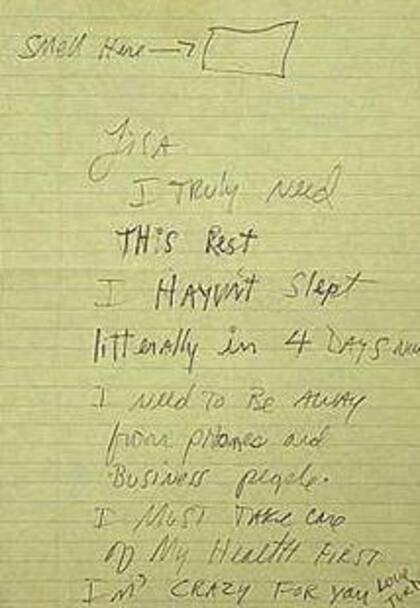 Smell Here →
Lisa
I Truly need
THis Rest
I HAYVn't Slept
litterally in 4 DAYS now
I need To Be AWAY
from phones and
Business people.
I Must Take care
of My Health First
I'm CRAZY FOR you Love